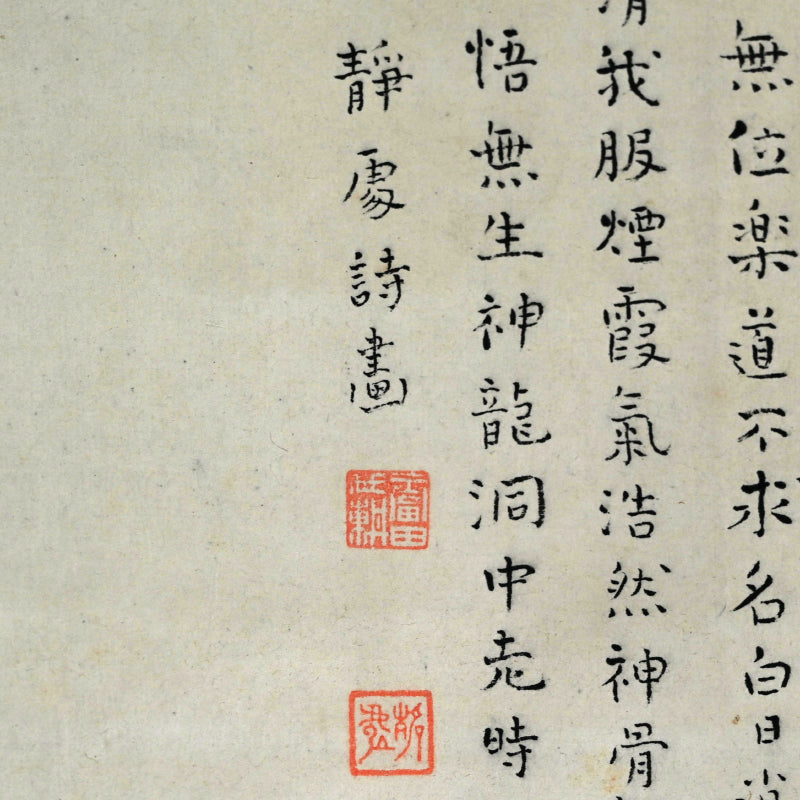 無位楽道不求名白日
我服煙霞氣浩然神骨
悟無生神龍洞中老時
靜處詩畫